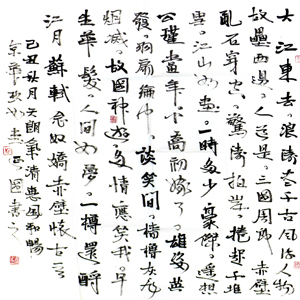 大江東去浪濤盡千古風流人物
故壘西邊人道是三國周郎赤壁
亂石穿空驚濤拍岸捲起千堆
雪江山如畫一時多少豪傑遙想
公瑾當年小喬初嫁了雄姿英
發羽扇綸巾談笑間檣櫓灰飛
煙滅故國神遊多情應笑我早
生華髮人間如夢一樽還酹
江月蘇軾念奴嬌赤壁懷古
己丑秋月天朗氣清惠風和暢
京華